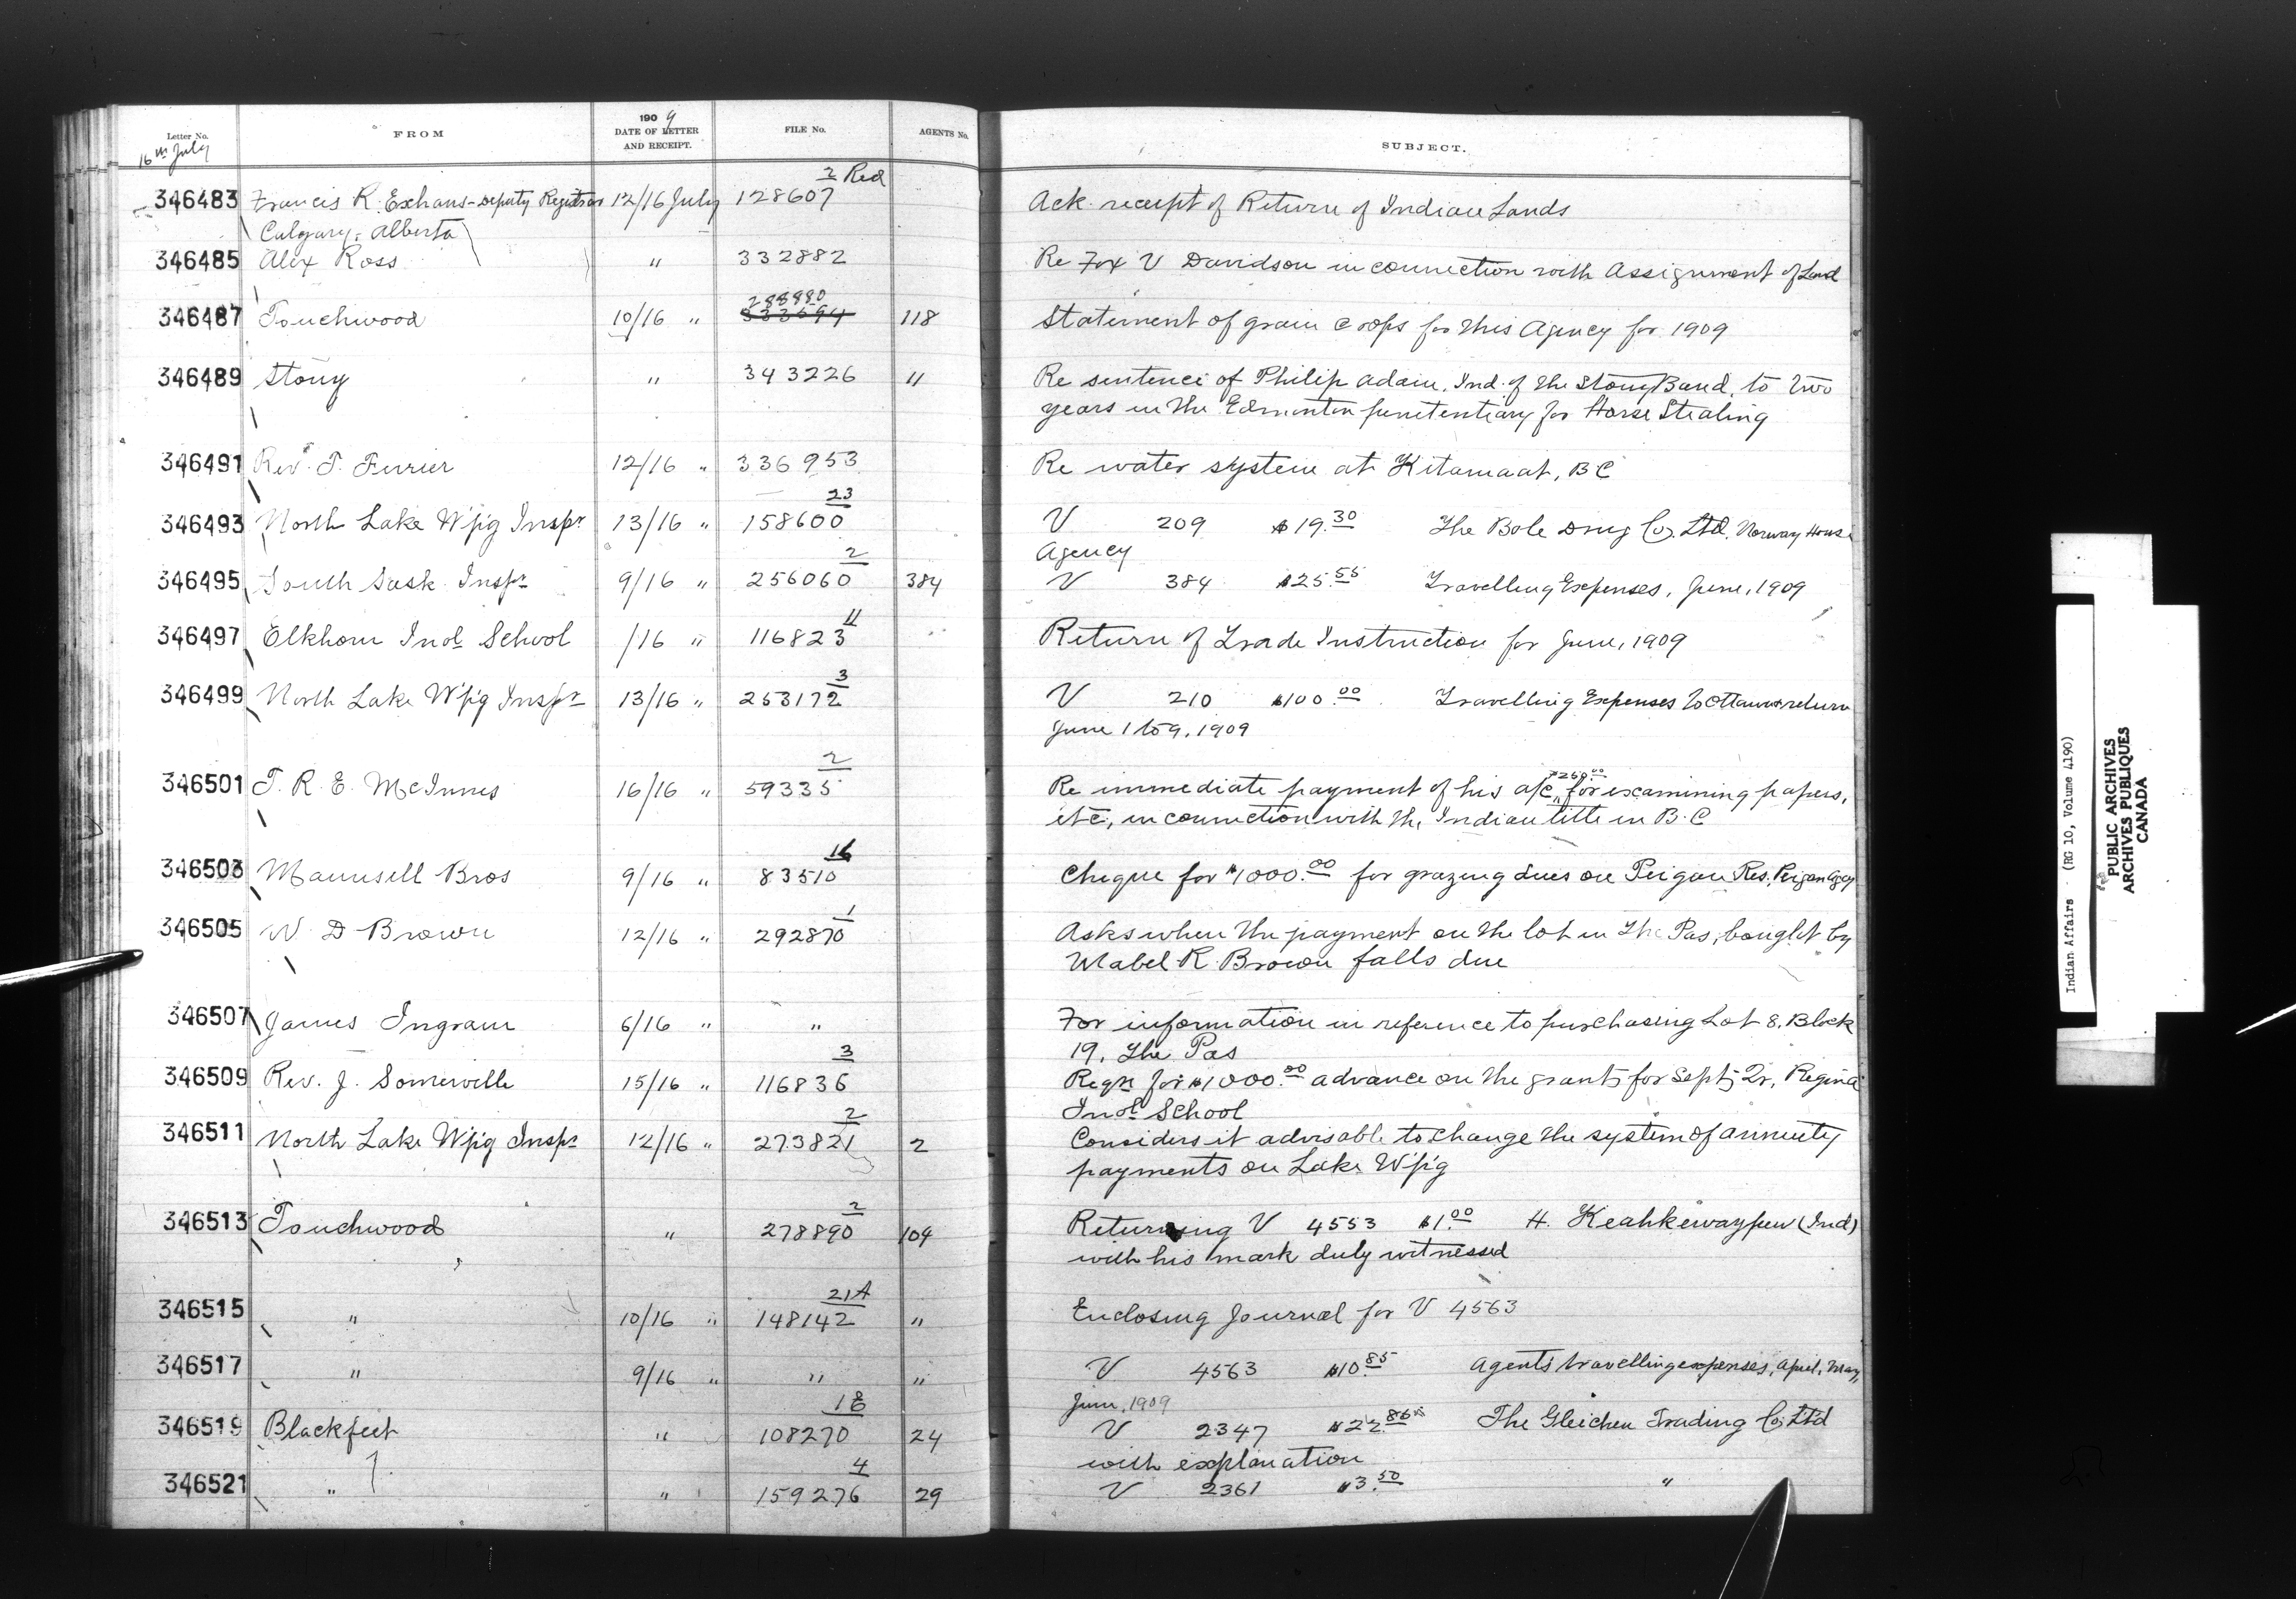 Letter No.
FROM
1909
DATE OF LETTER
AND RECEIPT.
FILE No.
AGENTS No.
SUBJECT.
16th July
2 Red
346483 Francis R. Exhans - Deputy Registrar 12/16 July 128607 Ack receipt of Return of Indian Lands
Calgary, Alberta
346485 Alex Ross " 332882 Re Fox V Davidson in connection with Assignment of Land
288980
346487 Touchwood 10/16 " 333694 118 Statement of grain crops for this Agency for 1909
346489 Stony " 343226 " Re sentence of Philip Adain, Ind. of the Stony Band, to two
years in the Edmonton penitentiary for Horse Stealing
346491 Revd. T. Ferrier 12/16 " 336953 Re water system at Kitamaat, BC
23
346493 North Lake W'pg Inspr 13/16 " 158600 V 209 $19.30 The Bole Drug Co. Ltd. Norway House
Agency
2
346495 South Sask Inspr 9/16 " 256060 384 V 384 $25.55 Travelling Expenses, June, 1909
11
346497 Elkhorn Indl School /16 " 116823 Return of Trade Instruction for June, 1909
3
346499 North Lake W'pg Inspr 13/16 " 253172 V 210 $100.00 Travelling Expenses to Ottawa & return
June 1 to 9, 1909
2 $260.00
346501 T. R. E. McInnes 16/16 " 59335 Re immediate payment of his a/c, for examining papers,
etc, in connection with the Indian title in B.C
16
346503 Maunsell Bros 9/16 " 83510 Cheque for $1000.00 for grazing dues on Peigan Res. Peigan Agcy
1
346505 W. D Brown 12/16 " 292870 Asks when the payment on the lot in The Pas, bought by
Mabel R. Brown falls due
346507 James Ingram 6/16 " " For information in reference to purchasing Lot 8, Block
19, The Pas
3
346509 Rev. J. Somerville 15/16 " 116836 Reqn for $1000.00 advance on the grants for Sept. Qr, Regina
Indl School
2
346511 North Lake W'pg Inspr 12/16 " 273821 2 Considers it advisable to change the system of annuity
payments on Lake W'pg
2
346513 Touchwood " 278890 104 Returning V 4553 $1.00 H. Keahkewaypew (Ind)
with his mark duly witnessed
21A
346515 " 10/16 " 148142 " Enclosing Journal for V 4563
346517 " 9/16 " " " V 4563 $10.85 Agent's travelling expenses, April, May,
June, 1909
18
346519 Blackfeet " 108270 24 V 2347 $22.85 The Gleichen Trading Co. Ltd
with explanation
4
346521 " " 159276 29 V 2361 $3.50 "
Indian Affairs (RG 10, Volume 4190)
PUBLIC ARCHIVES
ARCHIVES PUBLIQUES
CANADA